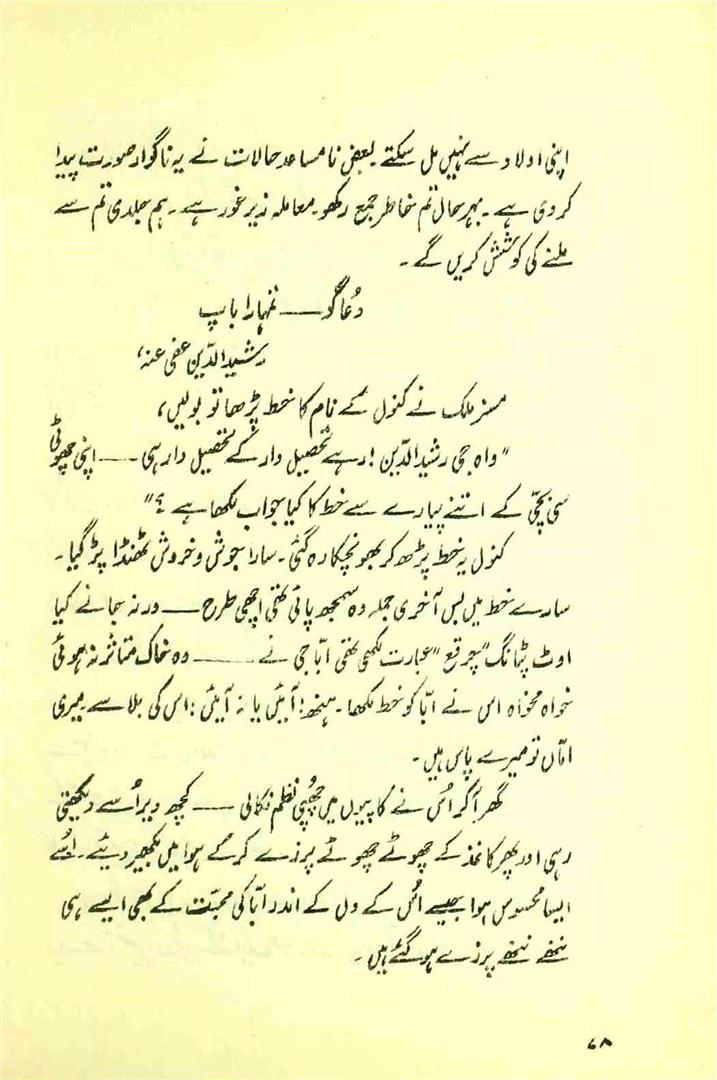 اپنی اولاد سے نہیں مل سکتے بعض نامساعد حالات نے یہ ناگوار صورت پیدا
کر دی ہے۔ بہرحال تم خاطر جمع رکھو۔ معاملہ زیر غور ہے۔ ہم جلدی تم سے
ملنے کی کوشش کریں گے۔
دُعاگو —— تمہارا باپ
رشید الدّین عفی عنہ،
مسز ملک نے کنول کے نام کا خط پڑھا تو بولیں،
"واہ جی رشید الدّین! رہے تحصیل دار کے تحصیل دار ہی —— اپنی چھوٹی
سی بچّی کے اتنے پیارے سے خط کا کیا جواب لکھا ہے؟"
کنول یہ خط پڑھ کر بھونچکا رہ گئی۔ سارا جوش و خروش ٹھنڈا پڑ گیا۔
سارے خط میں بس آخری جملہ وہ سمجھ پائی تھی اچھی طرح —— ورنہ جانے کیا
اوٹ پٹانگ "چرقع" عبارت لکھی تھی ابّا جی نے —— وہ خاک متاثر نہ ہوئی
خواہ مخواہ اس نے ابّا کو خط لکھا۔ ہنھ! آئیں یا نہ آئیں! اس کی بلا سے میری
امّاں تو میرے پاس ہیں۔
گھر آ کر اُس نے کاپیوں میں چھپی نظم نکالی —— کچھ دیر اُسے دیکھتی
رہی اور پھر کاغذ کے چھوٹے چھوٹے پرزے کر کے ہوا میں بکھیر دیئے۔ اُسے
ایسا محسوس ہوا جیسے اُس کے دل کے اندر ابّا کی محبّت کے بھی ایسے ہی
ننھے ننھے پرزے ہو گئے ہیں۔
۶۸